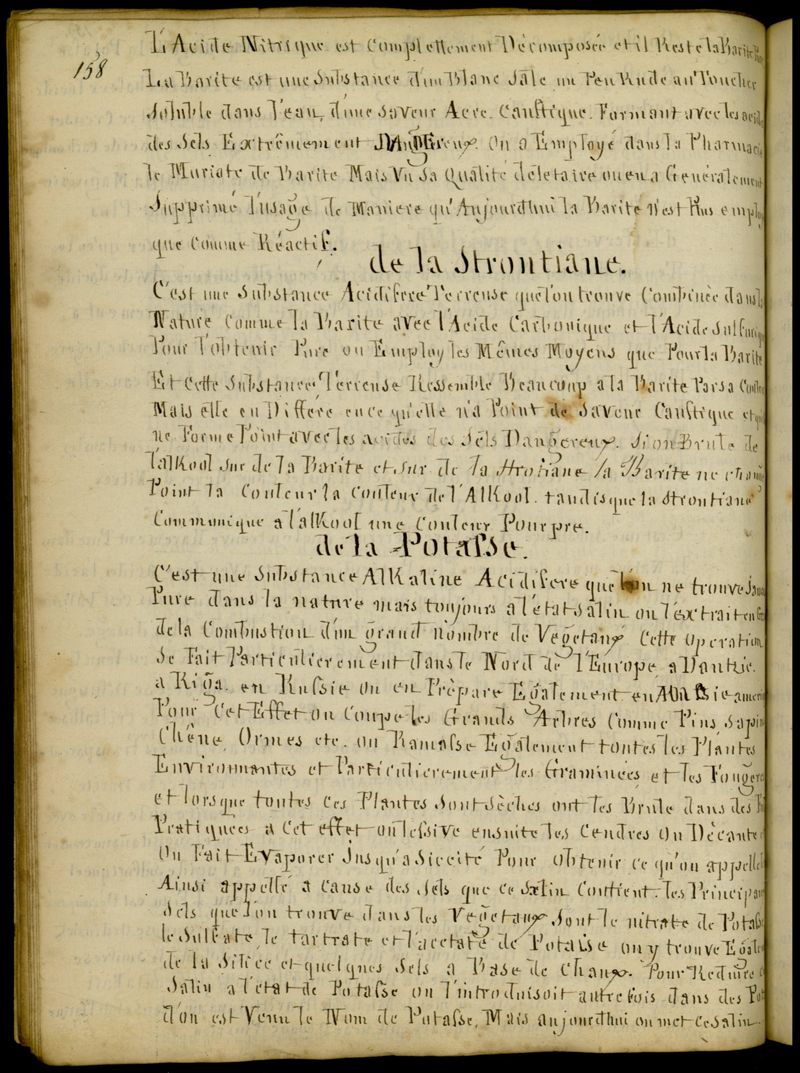 158
L'Acide Nitrique est Complettement Décomposée et il Reste la Barite
La Barite est une Substance d'un Blanc Sale un Peu Rude au Toucher
Soluble dans l'eau, d'une Saveur Acre, Caustique. Formant avec les acid
des Sels Extrêmement Dangereux. On a Employé dans la Pharmaci
le Muriate de Barite Mais Vu Sa Qualité déletaire on en a Generalement
Supprimé l'usage de Maniere qu'Aujourdhui la Barite n'est Plus employ
que Comme Réactif.
de la Strontiane.
C'est une Substance Acidifere Terreuse que l'on trouve Combinée dans l
Nature Comme la Barite avec l'Acide Carbonique et l'Acide Sulfuriq
Pour l'obtenir Pure on Employ les Mêmes Moyens que Pour la Barite
Et Cette Substance Terreuse Ressemble Beaucoup a la Barite Par sa
Mais elle en Differe en ce qu'elle n'a Point de Saveur Caustique et
ne Forme Point avec les acides des Sels Dangereux. Si on Brule de
l'alKool Sur de la Barite et sur de la Strotiane la Barite ne
Point la Couleur la Couleur de l'AlKool. tandisque la Strontiane
Communique a l'alKool une Couleur Pourpre.
de la Potasse.
C'est une Substance AlKaline Acidifere que l'on ne trouve Jama
Pure dans la nature mais toujours a l'etat Salin on l'extrait en
de la Combustion d'un grand nombre de Vegetaux Cette operation
Se Fait Particulierement dans le Nord de l'Europe a Dantzic.
a Riga. en Russie on en Prépare Egalement en
Pour Cet Effet on Coupe les Grands Arbres Comme Pins Sapin
Chêne, Ormes etc. on Ramasse Egalement toutes les Plantes
Environnantes et Particulierement les Graminées et les Fougere
et lorsque toutes Ces Plantes Sont Sèches on les Brule dans des
Pratiquées a Cet effet on lessive ensuite les Cendres on Décante
On Fait Evaporer Jusqu'a Siccité Pour obtenir ce qu'on appelle
Ainsi appellé a Cause des Sels que ce Salin Contient. les Principau
Sels que l'on trouve dans les Vegetaux Sont le nitrate de Potass
le Sulfate, le tartrate et l'acetate de Potasse on y trouve Egale
de la Silice et quelques Sels a Base de Chaux. Pour Reduire
Salin a l'etat de Potasse on l'introduisoit autrefois dans des Pot
d'ou est Venu le Nom de Potasse, Mais aujourdhui on met ce Salin